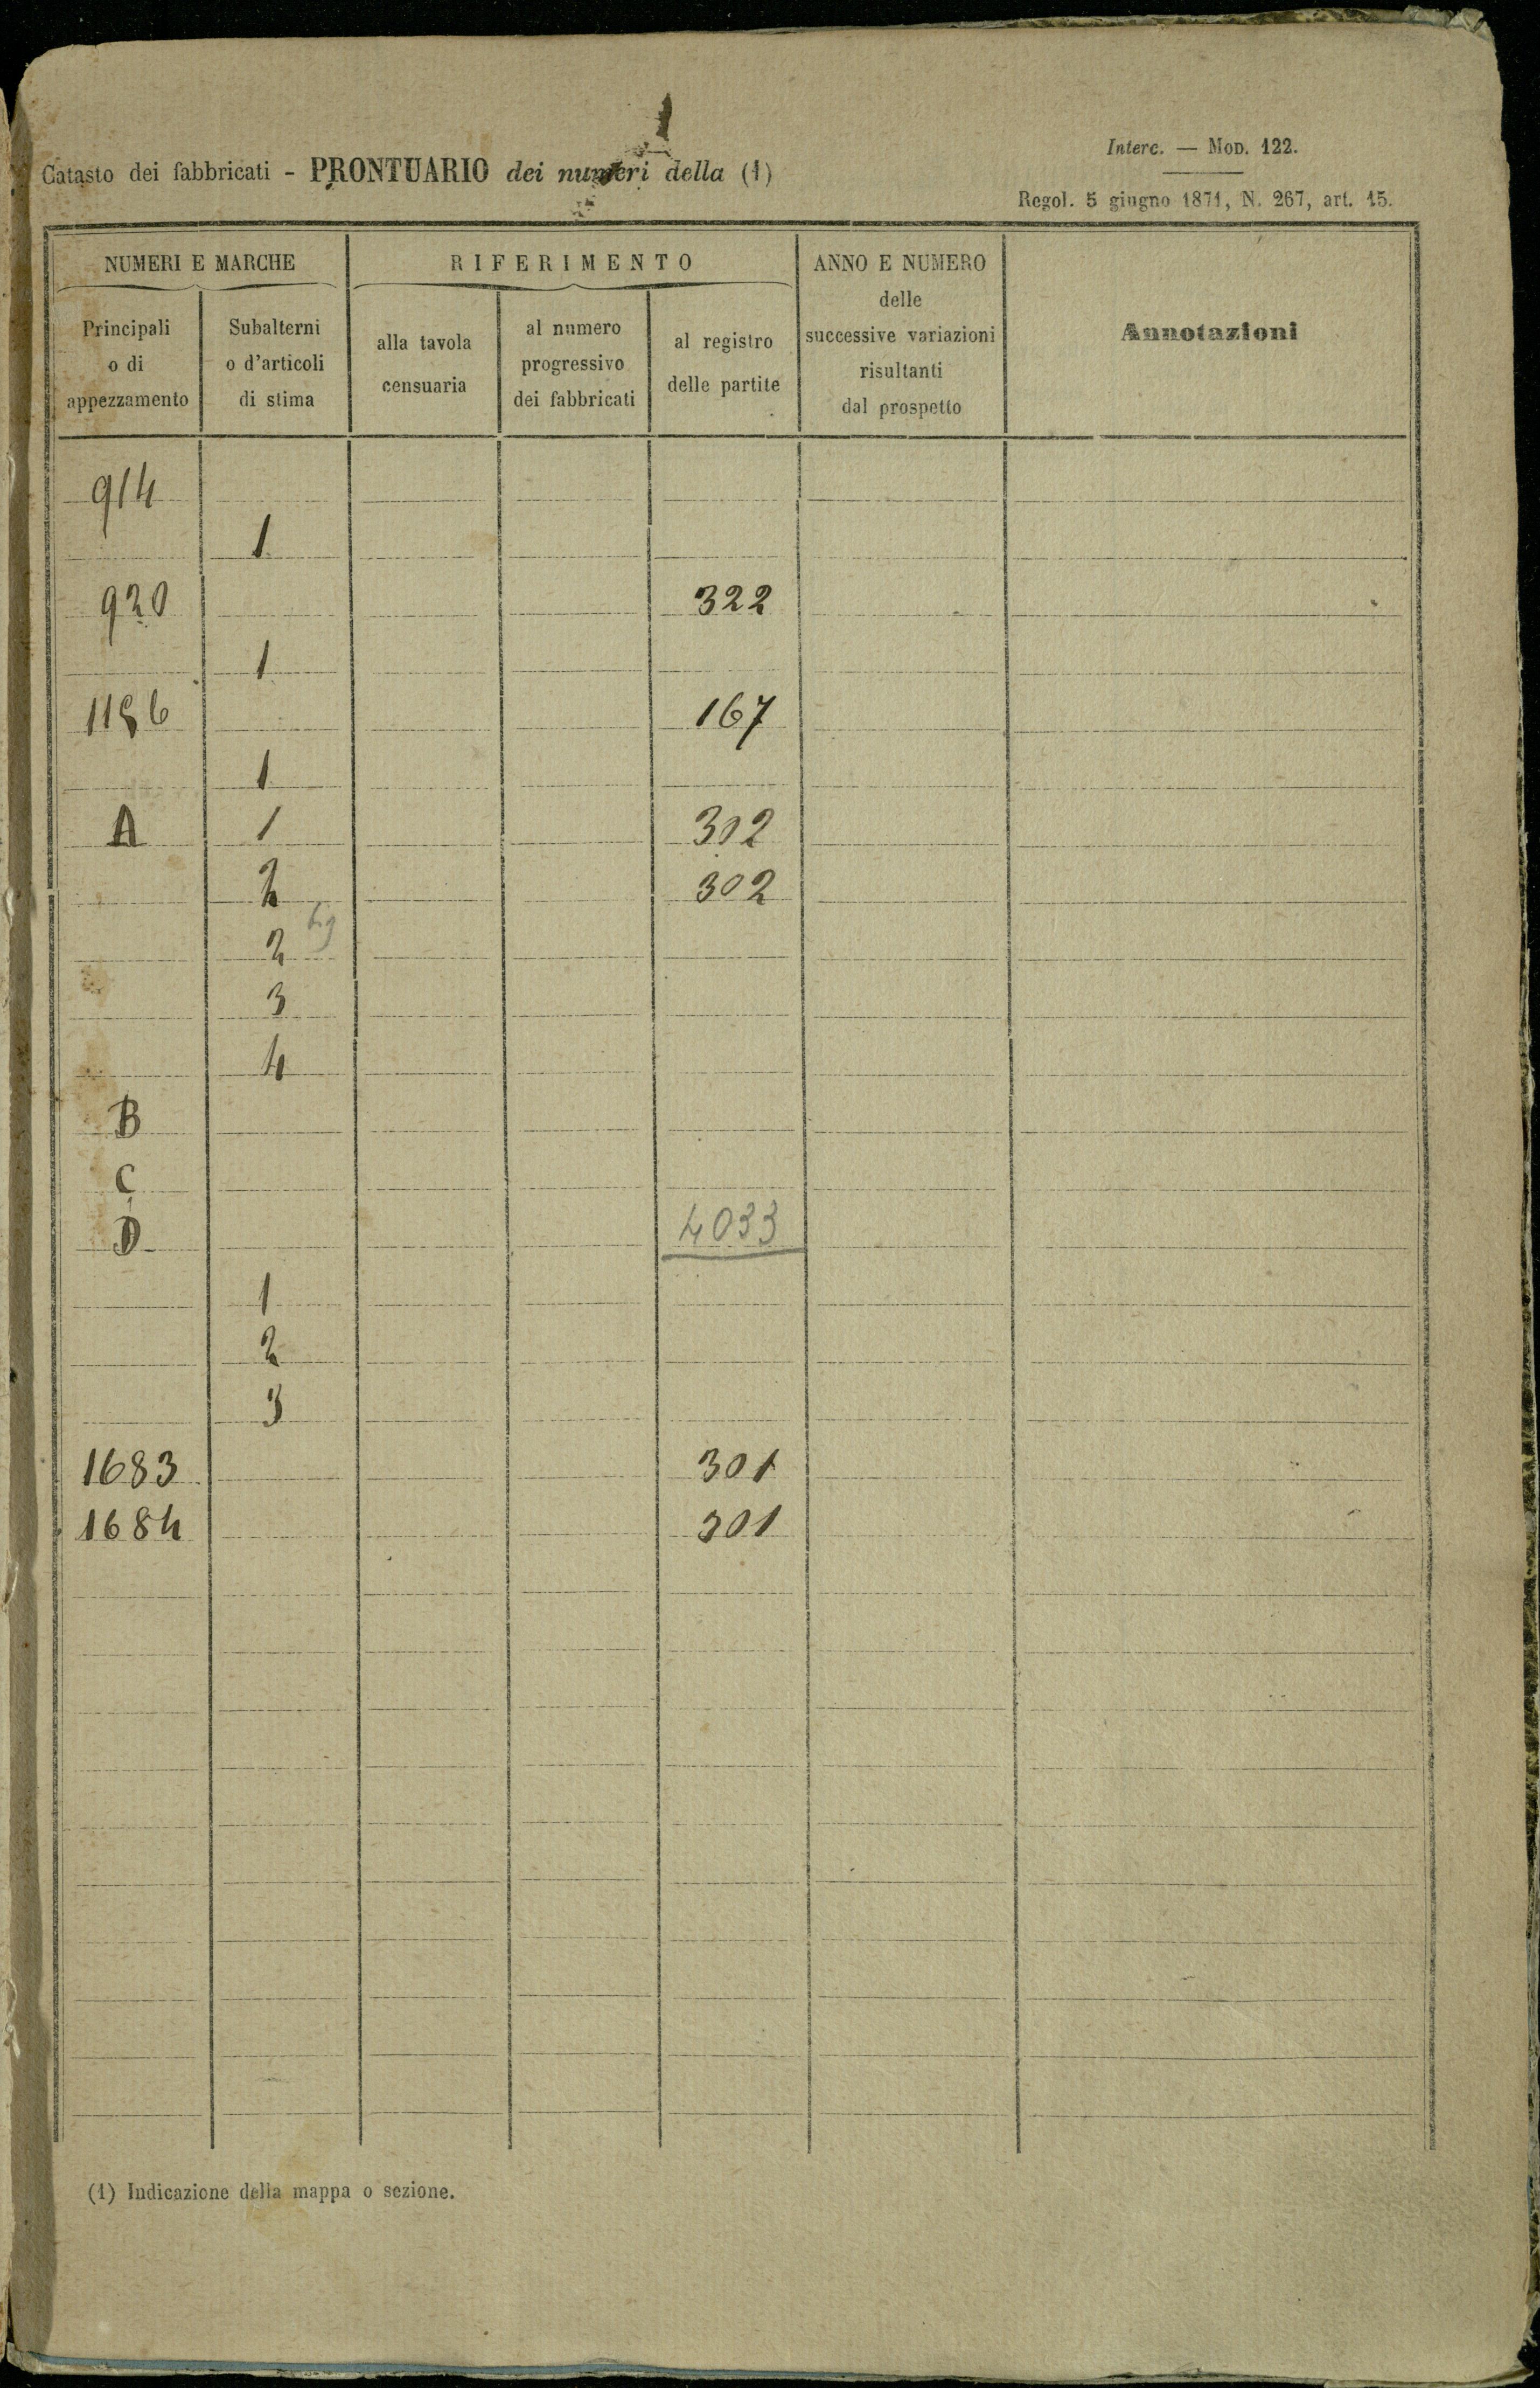 Interc. — Mod. 122.
Catasto dei fabbricati - PRONTUARIO dei numeri della (1)
Regol. 5 giugno 1871, N. 267, art. 15.
NUMERI E MARCHE RIFERIMENTO ANNO E NUMERO delle successive variazioni risultanti dal prospetto Annotazioni
Principali o di appezzamento Subalterni o d'articoli di stima alla tavola censuaria al numero progressivo dei fabbricati al registro delle partite
914
1
920 322
1
167
1
A 1 302
2 302
2
3
4
B
C
D 4033
1
2
3
1683 301
1684 301
(1) Indicazione della mappa o sezione.